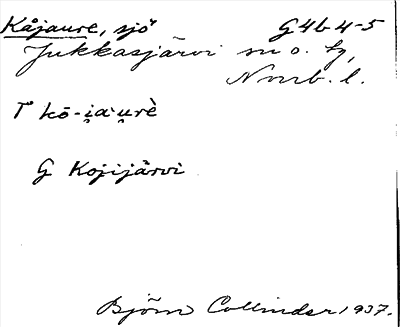 Kåjaure, sjö G4b 4-5
Jukkasjärvi sn o. tg,
Nrrb. l.
T kō-i̯a·u̯rè
G Kojijärvi
Björn Collinder 1937.